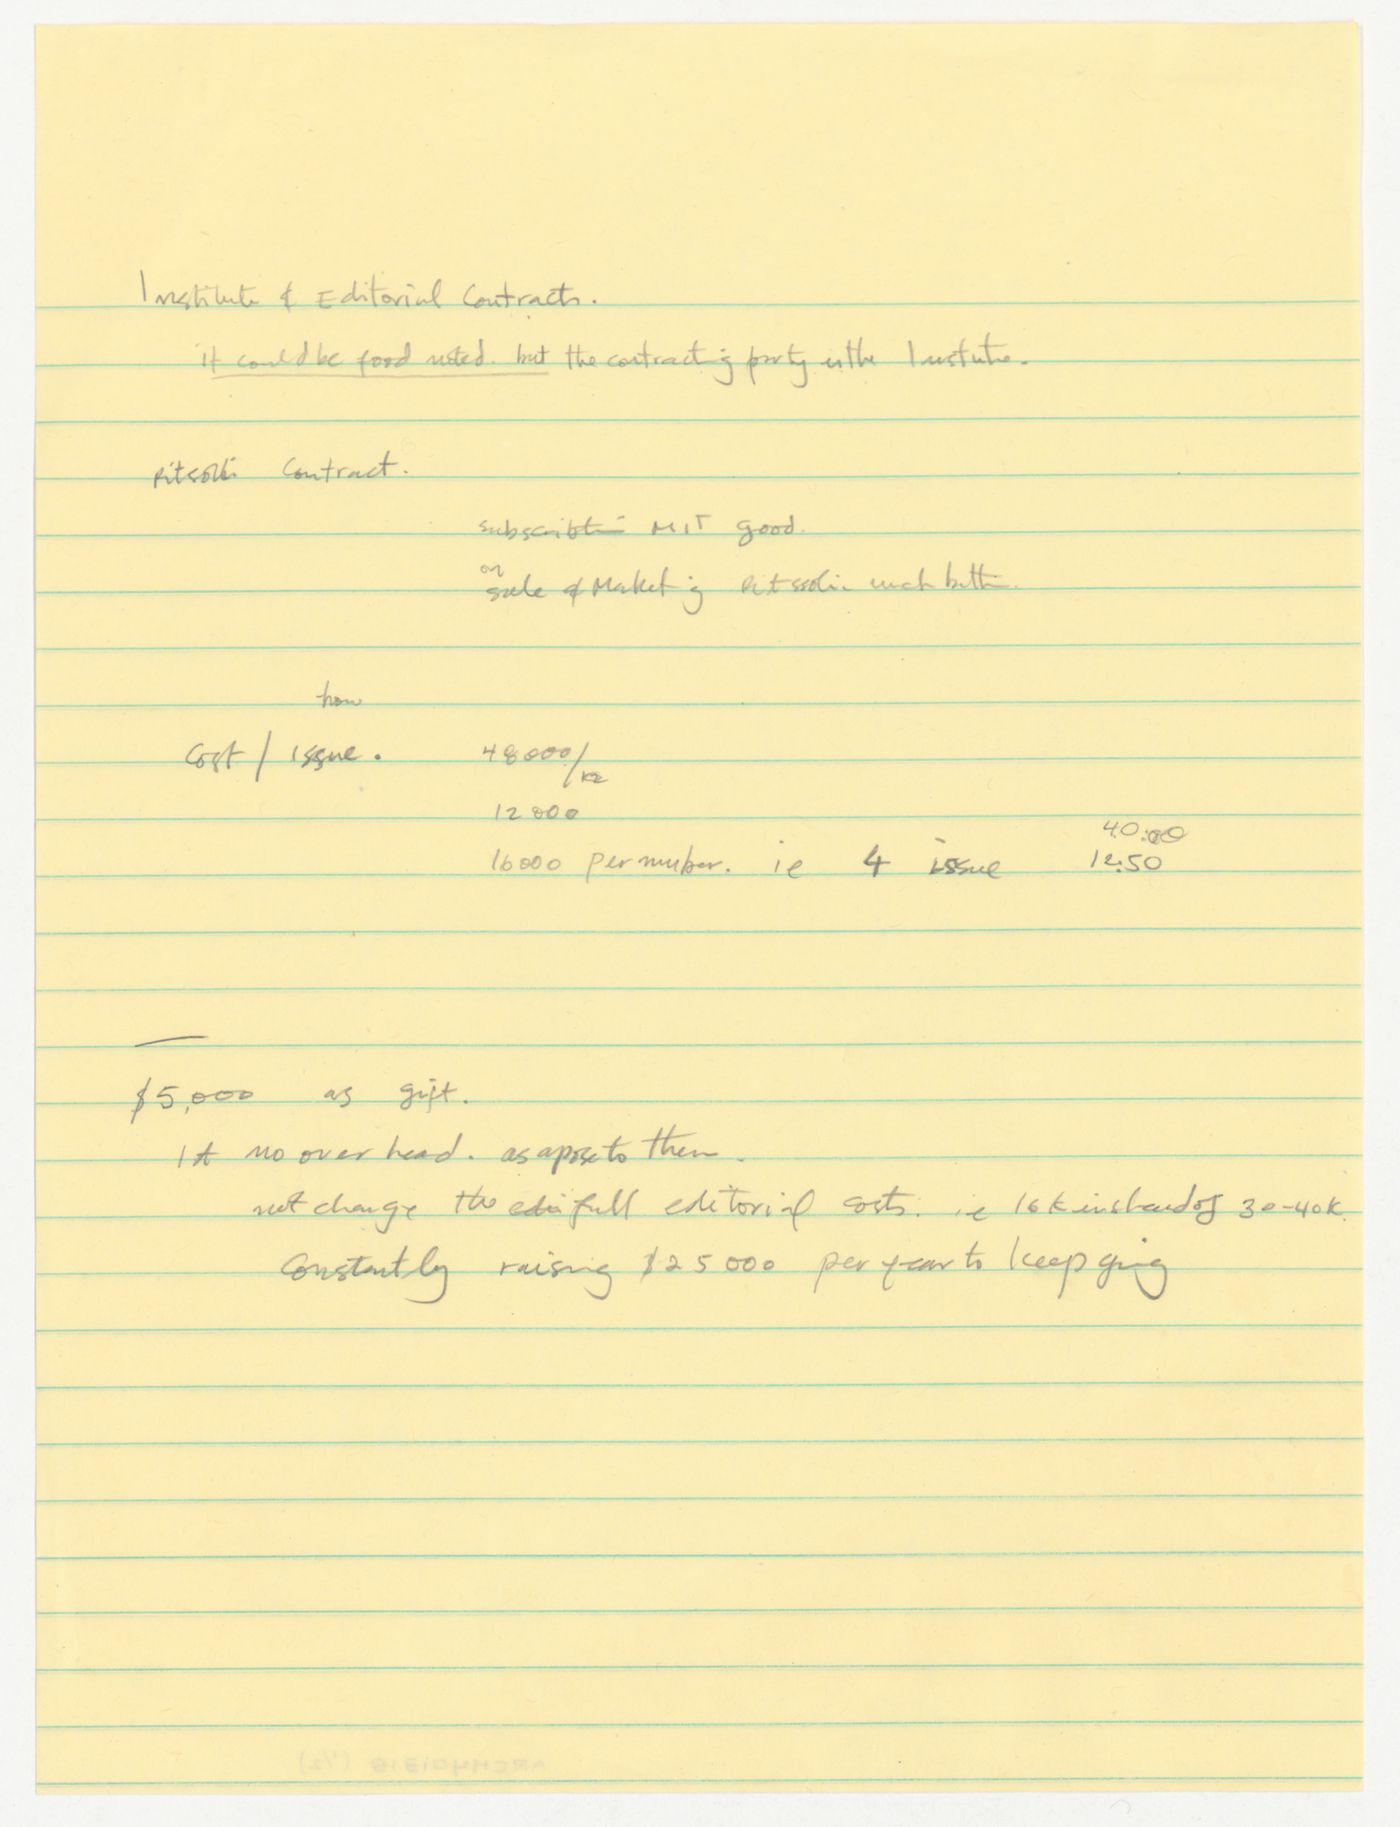 Institute & Editorial Contracts.
it could be food noted. but the contracting party is the Institute.
Ritsolli Contract.
subscription MIT good.
on
sale & Marketing Ritssoli much better.
how
Cost / issue. 48000/12
12000
40.00
16000 per number. ie 4 issue 12.50
$5,000 as gift.
1st no over head. as apose to them.
not change the edi full editorial costs. ie 16K instead of 30-40K.
Constantly raising $25000 per year to keep going
ARCH401318 (1/2)